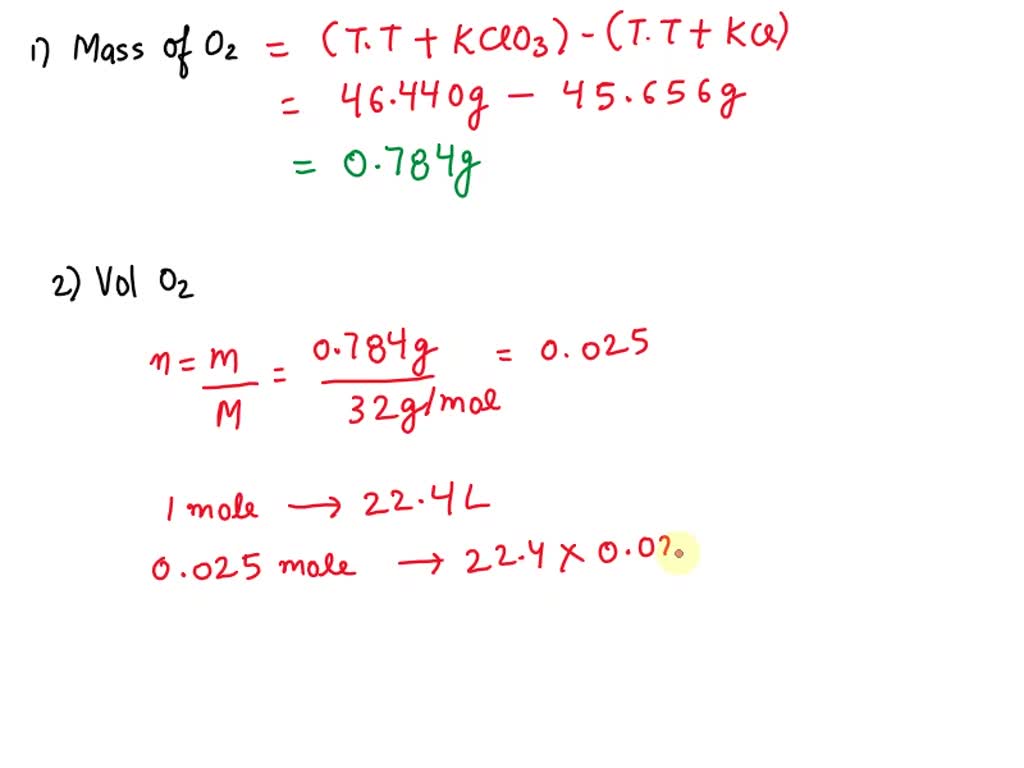 1) Mass of O2 = (T.T + KClO3) - (T.T + KCl)
= 46.440g - 45.656g
= 0.784g
2) Vol O2
n = m/M = 0.784g/32g/mol = 0.025
1 mole → 22.4L
0.025 mole → 22.4 × 0.02